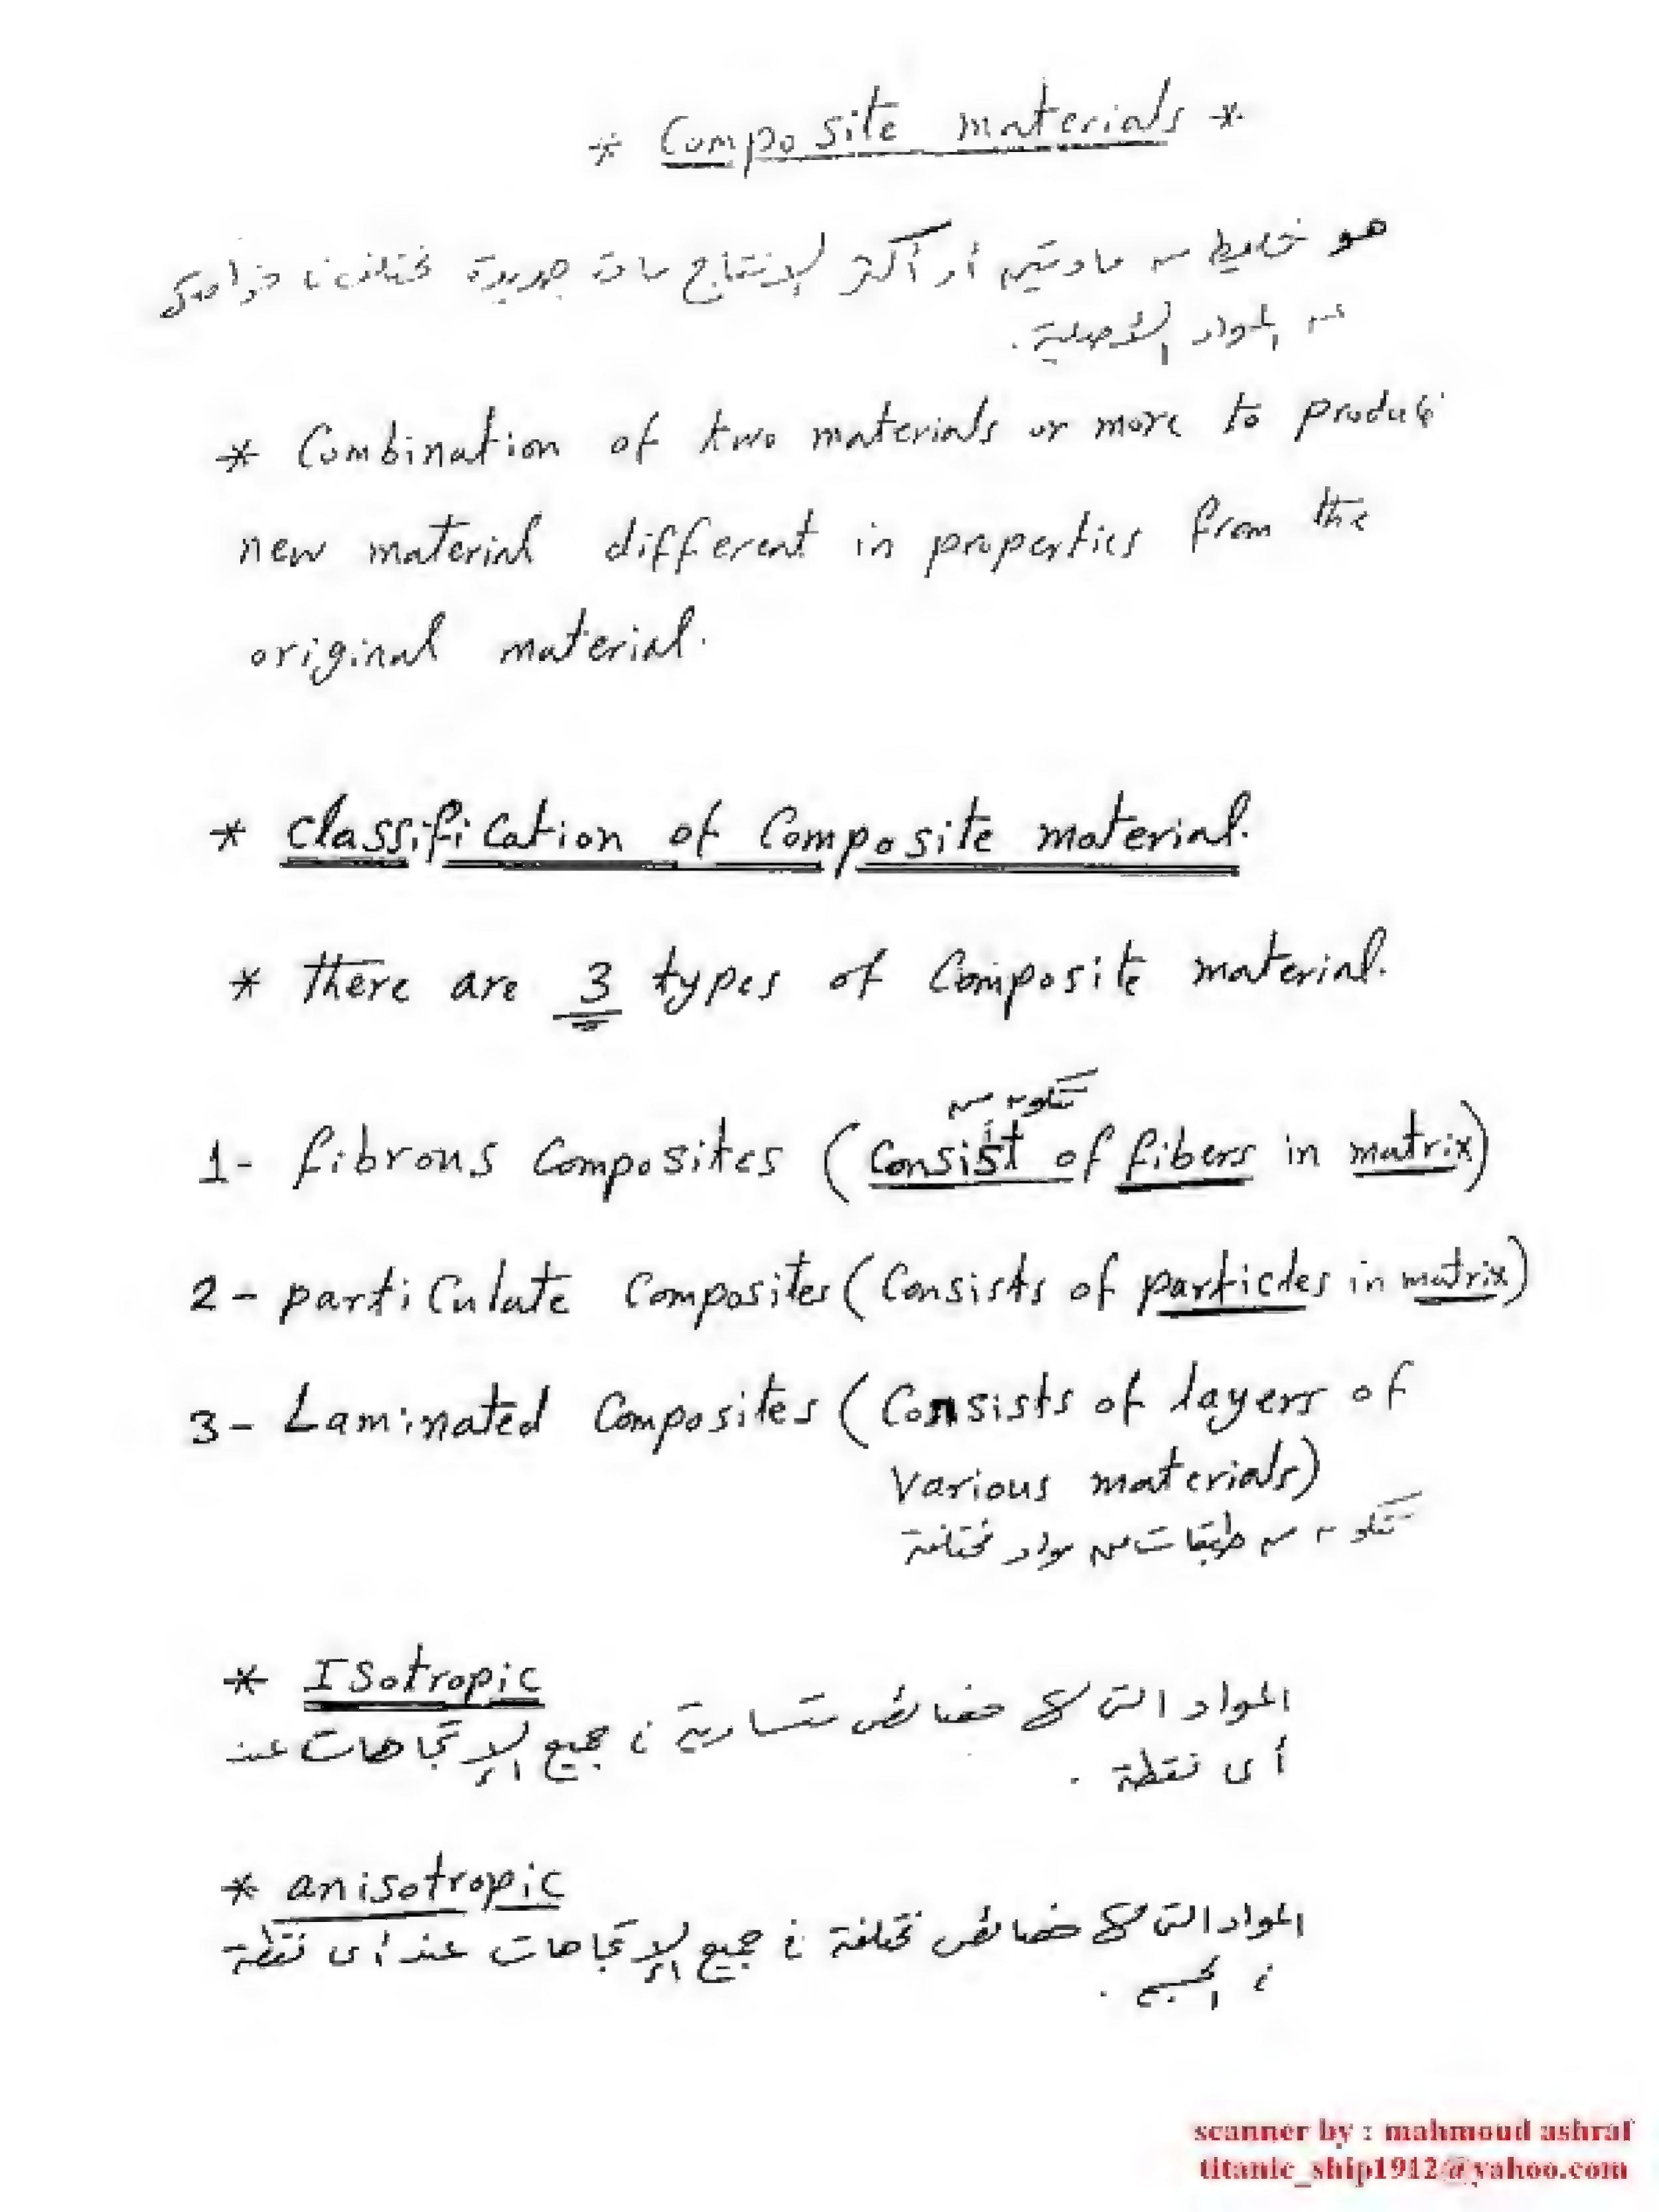 * Composite materials *
هو خليط من مادتين أو أكثر لإنتاج مادة جديدة تختلف في خواصها
عن المواد الأصلية.
* Combination of two materials or more to produce
new material different in properties from the
original material.
* Classification of Composite material.
* there are 3 types of Composite material.
تتكون من
1- fibrous Composites (Consist of fibers in matrix)
2- particulate Composites (Consists of particles in matrix)
3- Laminated Composites (Consists of layers of
various materials)
تتكون من طبقات من مواد مختلفة
* Isotropic
المواد التى لها خصائص متساوية فى جميع الإتجاهات عند
أى نقطة .
* anisotropic
المواد التى لها خصائص مختلفة فى جميع الإتجاهات عند أى نقطة
فى الجسم .
scanner by : mahmoud ashraf
titanic_ship1912@yahoo.com